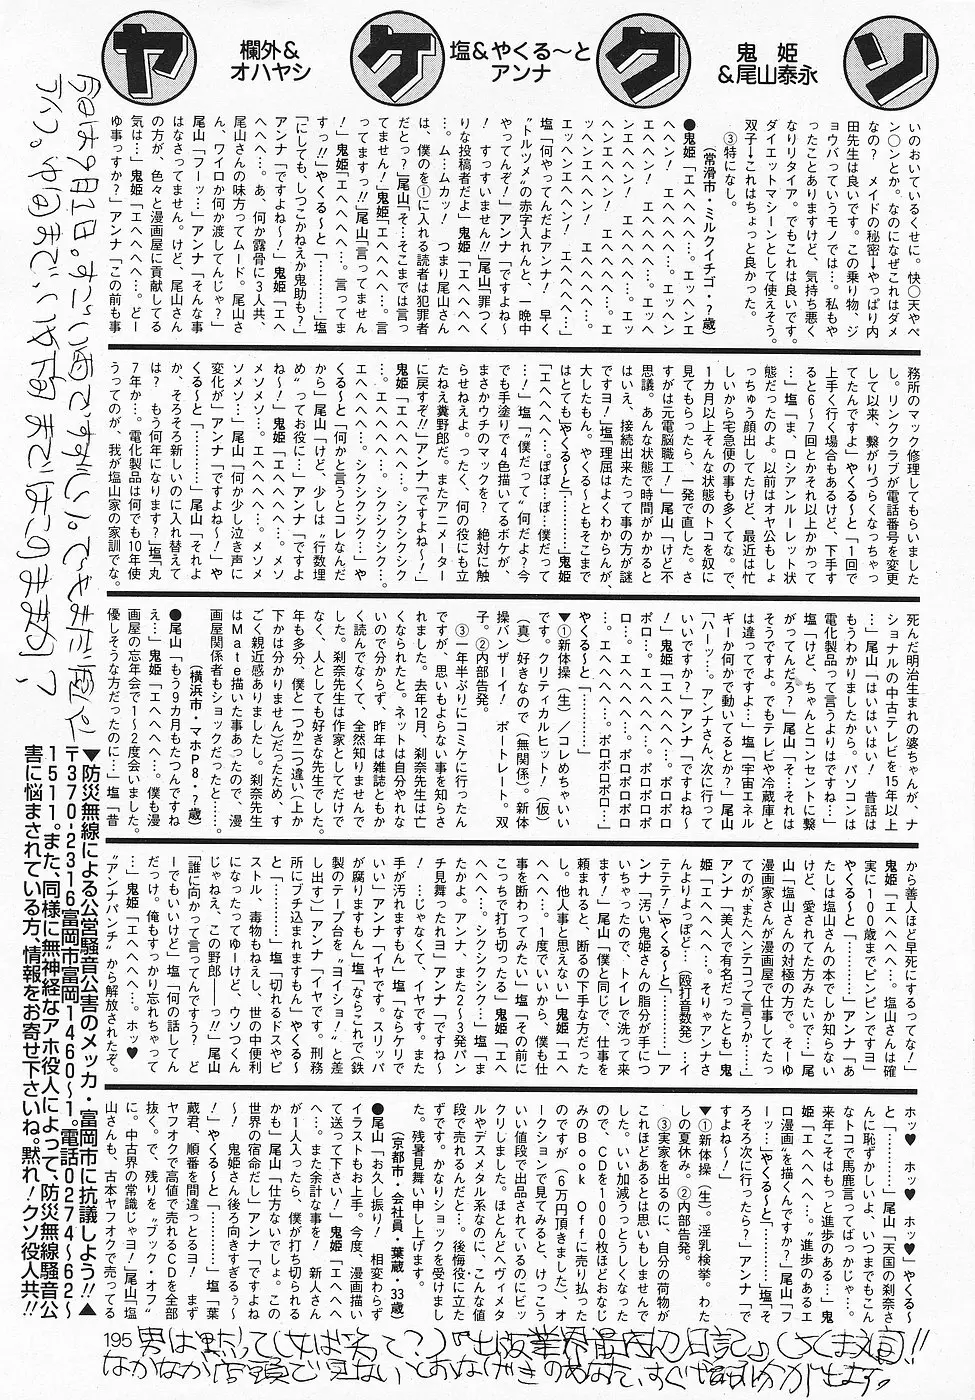 ソ
ク
ケ
ヤ
鬼姫
&尾山泰永
塩&やくる〜と
アンナ
欄外&
オハヤシ
いのおいているくせに。快〇天やペ
ン〇ンとか。なのになぜこれはダメ
なの? メイドの秘密→やっぱり内
田先生は良いです。この乗り物、ジ
ョウバっていうモノでは…。私もや
ったことありますけど、気持ち悪く
なりリタイア。でもこれは良いです。
ダイエットマシーンとして使えそう。
双子→これはちょっと良かった。
③特になし。
(常滑市・ミルクイチゴ・?歳)
●鬼姫「エヘヘヘヘ…。エッヘンエ
ヘヘン! エヘヘヘヘ…。エッヘン
エヘヘン! エヘヘヘヘ…。エッヘ
ンエヘヘン! エヘヘヘヘ…。エッ
ヘンエヘヘン! エヘヘヘヘ…。エ
ッヘンエヘヘン! エヘヘヘヘ…」
塩「何やってんだよアンナ! 早く
〝トルツメ〟の赤字入れんと、一晩中
やってんぞ!」アンナ「ですよね〜
! すっすいません!!」尾山「罪つく
りな投稿者だよ」鬼姫「エヘヘヘヘ
…。ム…ムカッ! つまり尾山さん
は、僕のを①に入れる読者は犯罪者
だとっ?」尾山「そ…そこまでは言っ
てません!」鬼姫「エヘヘヘヘ…。言
ってますっ!!」尾山「言ってません
!」鬼姫「エヘヘヘヘ…。言ってま
すっ!!」やくる〜と「…………」塩
「にしても、しつこかねえか鬼助も?」
アンナ「ですよね〜!」鬼姫「エヘ
ヘヘヘ…。あ、何か露骨に3人共、
尾山さんの味方ってムード。尾山さ
ん、ワイロか何か渡してんでしょ?」
尾山「フーッ…」アンナ「そんな事
はなさってません。けど、尾山さん
の方が、色々と漫画屋に貢献してる
気は…」鬼姫「エヘヘヘヘ…。どー
ゆ事っすか?」アンナ「この前も事
務所のマック修理してもらいました
し。リンククラブが電話番号を変更
して以来、繋がりづらくなっちゃっ
てたんですよ」やくる〜と「1回で
上手く行く場合もあるけど、下手す
ると6〜7回とかそれ以上かかって
…」塩「ま、ロシアンルーレット状
態だったのよ。以前はオヤ公もしょ
っちゅう顔出してたけど、最近は忙
しいから宅急便の事も多くてな。で、
1カ月以上そんな状態のトコを奴に
見てもらったら、一発で直した。さ
すがは元電脳職工!」尾山「けど不
思議。あんな状態で時間がかかると
はいえ、接続出来たって事の方が謎
ですヨ!」塩「理屈はよくわからんが、
大したもんだ。やくる〜ともそこまで
はとても」やくる〜と「…………」鬼姫
「エヘヘヘヘ…。ぽぽ…ぽ…僕だって
…」塩「〝僕だって〟何だよ? 今
でも手塗りで4色描いてるボケが、
まさかウチのマックを? 絶対に触
らせねえよ。ったく、何の役にも立
たねえ糞野郎だ。またアニメーター
に戻すぞ!!」アンナ「ですよね〜!」
鬼姫「エヘヘヘヘ…。シクシクシク
…。エヘヘヘヘ…。シクシクシク…。
エヘヘヘヘ…。シクシクシク…」や
くる〜と「何かと言うとコレなんだ
から」尾山「けど、少しは〝行数埋
め〟ってお役に…」アンナ「ですよ
ね〜!」鬼姫「エヘヘヘヘ…。メソ
メソメソ…。エヘヘヘヘ…。メソメ
ソメソ…」尾山「何か少し泣き声に
変化が」アンナ「ですよね〜!」や
くる〜と「…………」尾山「それよ
か、そろそろ新しいのに入れ替えて
は? もう何年になります?」塩「丸
7年か…。電化製品は何でも10年使
うってのが、我が塩山家の家訓でな。
死んだ明治生まれの婆ちゃんが、ナ
ショナルの中古テレビを15年以上
…」尾山「はいはいはい! 昔話は
もうわかりましたから。パソコンは
電化製品って言うよりはですね…」
塩「けど、ちゃんとコンセントに繋
がってんだろ?」尾山「そ…それは
そうですよ。でもテレビや冷蔵庫と
は違ってですよ…」塩「宇宙エネル
ギーか何かで動いてるとか?」尾山
「ハーッ…。アンナさん、次に行って
いいですか?」アンナ「ですよね〜
!」鬼姫「エヘヘヘヘ…。ポロポロ
ポロ…。エヘヘヘヘ…。ポロポロポ
ロ…。エヘヘヘヘ…。ポロポロポロ
…。エヘヘヘヘ…。ポロポロポロ…」
やくる〜と「…………」
▼①新体操(生)/コレめちゃいい
です。クリティカルヒット!(仮)
(真)好きなので(無関係)。新体
操バンザーイ! ポートレート。双
子。②内部告発。
③一年半ぶりにコミケに行ったん
ですが、思いもよらない事を知らさ
れました。去年12月、刹奈先生は亡
くなられたと。ネットは自分やれな
いので分からず、昨年は雑誌ともか
く読んでなくて、全然知りませんで
した。刹奈先生は作家としてだけで
なく、人としても好きな先生でした。
年も多分、僕と一つか二つ違い(上か
下かは分かりません)だったため、す
ごく親近感ありましたし。刹奈先生
はMate描いた事あったので、漫
画屋関係者もショックだったと…。
(横浜市・マホP8・?歳)
●尾山「もう9カ月もたつんですね
え…」鬼姫「エヘヘヘヘ…。僕も漫
画屋の忘年会で1〜2度会いました。
優しそうな方だったのに…」塩「昔
から善人ほど早死にするってな!」
鬼姫「エヘヘヘヘ…。塩山さんは確
実に100歳までピンピンですヨ」
やくる〜と「…………」アンナ「あ
たしは塩山さんの本でしか知らない
けど、愛されてた方みたいで…」尾
山「塩山さんの対極の方で。そーゆ
漫画家さんが漫画屋で仕事してたっ
てのが、またヘンテコって言うか……」
アンナ「美人で有名だったとも」鬼
姫「エヘヘヘヘ…。そりゃアンナさ
んよりよっぽど…(殴打音数発)…イ
テテテ!」やくる〜と「…………」ア
ンナ「汚い鬼姫さんの脂分が手につ
いちゃったので、トイレで洗って来
ます!」尾山「僕と同じで、仕事を
頼まれると、断るの下手な方だった
し。他人事と思えない」鬼姫「エヘ
ヘヘヘ…。1度でいいから、僕も仕
事を断わってみたい」塩「その前に
こっちで打ち切ったる」鬼姫「エヘ
ヘヘヘ…。シクシクシク…」塩「ま
たかよ。アンナ、また2〜3発パン
チ見舞ったれヨ」アンナ「ですね〜
!…じゃなくて、イヤです。また
手が汚れますもん」塩「ならケリで
いい」アンナ「イヤです。スリッパ
が腐りますもん」塩「ならこれで(鉄
製のテープ台を〝ヨイショ!〟と差
し出す)」アンナ「イヤです。刑務
所にブチ込まれますもん」やくる〜
と「…………」塩「切れるドスやピ
ストル、毒物もねえし、世の中便利
になったってゆーけど、ウソつくん
じゃねえ、この野郎――っ!!」尾山
「誰に向かって言ってんですう? ま
ーでもいいけど」塩「何の話してん
だっけ。俺もすっかり忘れちゃって
…」鬼姫「エヘヘヘヘ…。ホッ♥
〝アンナパンチ〟から解放されたぞ。
ホッ♥ ホッ♥ ホッ♥」やくる〜
と「…………」尾山「天国の刹奈さ
んに恥ずかしいよ、いつまでもこん
なトコで馬鹿言ってばっかじゃ…。
来年こそはもっと進歩のある…」鬼
姫「エヘヘヘヘ…。〝進歩のあるエ
口漫画〟を描くんですか?」尾山「フ
ーッ…」やくる〜と「…………」塩「そ
ろそろ次に行ったら?」アンナ「で
すよね〜!」
▼①新体操(生)。淫乳検挙。わた
しの夏休み。②内部告発。
③実家を出るのに、自分の荷物が
これほどあるとは思いもしませんで
した。いい加減うっとうしくなった
ので、CDを1000枚ほどおなじ
みのBook Offに売り払った
のですが(6万円頂きました)、オ
ークションで見てみると、けっこう
いい値段で出品されているのにビッ
クリしました。ほとんどへヴィメタ
ルやデスメタル系なのに、こんな値
段で売れるんだと…。後悔役に立た
ずです。かなりショックを受けまし
た。残暑見舞い申し上げます。
(京都市・会社員・葉蔵・33歳)
●尾山「お久し振り! 相変わらず
イラストもお上手。今度、漫画描い
て送って下さい!」鬼姫「エヘヘヘ
ヘ…。また余計な事を! 新人さん
が1人入ったら、僕が打ち切られる
かも」尾山「仕方ないでしょ。この
世界の宿命だし」アンナ「ですよね
〜! 鬼姫さん後ろ向きすぎるぅ〜
!」やくる〜と「…………」塩「葉
蔵君、順番を間違っとるヨ! まず
ヤフオクで高値で売れるCDを全部
抜く。で、残りを〝ブック・オフ〟
に。中古界の常識じゃヨ!」尾山「塩
山さんも、古本ヤフオクで売ってる
▼防災無線による公営騒音公害のメッカ・富岡市に抗議しよう!!▲
〒370-2316富岡市富岡1460〜1。電話0274〜62〜
1511。また、同様に無神経なアホ役人によって、防災無線騒音公
害に悩まされている方、情報をお寄せ下さいね。黙れ!クソ役人共!!
今日は9月1日。すごい雨ですずしい。でもまだ
195
男は黙って(女は笑って?)『出版業界最底辺日記』(ちくま文庫)!!
なかなか店頭で見ないとおなげきのあなた、すぐ